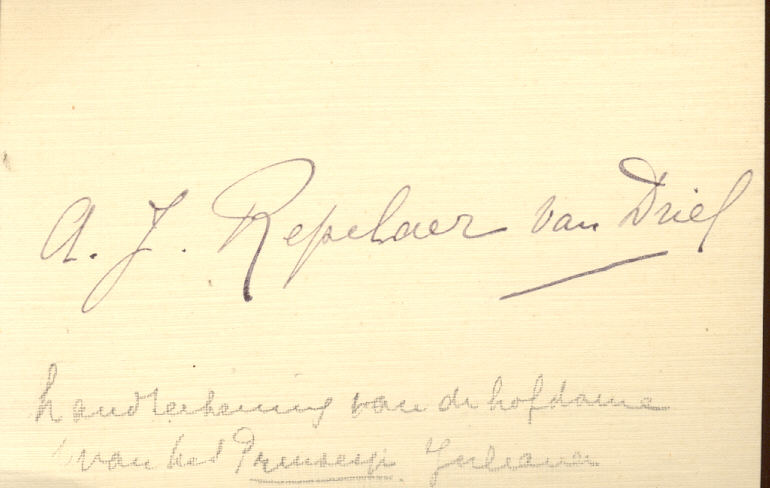 A. J. Repelaer van Driel
handtekening van de hofdame
van het Prinsesje Juliana